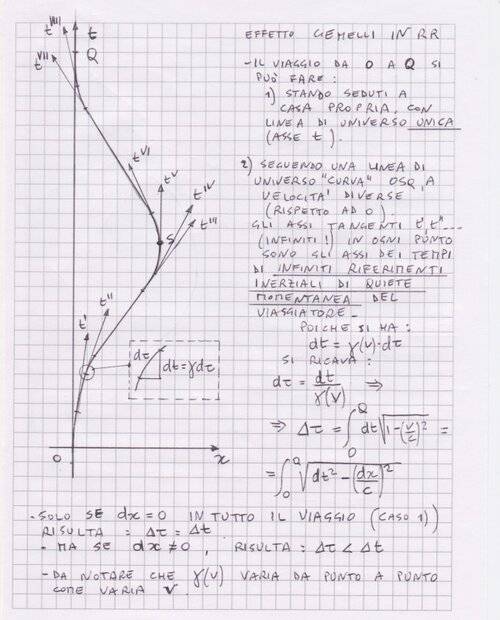 EFFETTO GEMELLI IN RR
- IL VIAGGIO DA O A Q SI
PUÒ FARE :
1) STANDO SEDUTI A
CASA PROPRIA, CON
LINEA DI UNIVERSO UNICA
(ASSE t).
2) SEGUENDO UNA LINEA DI
UNIVERSO "CURVA" OSQ, A
VELOCITA' DIVERSE
(RISPETTO AD O).
GLI ASSI TANGENTI t', t''----
(INFINITI!) IN OGNI PUNTO
SONO GLI ASSI DEI TEMPI
DI INFINITI RIFERIMENTI
INERZIALI DI QUIETE
MOMENTANEA DEL
VIAGGIATORE -
POICHE SI HA :
dt = γ(v)·dτ
SI RICAVA :
dτ = dt/γ(v) ⇒
⇒ Δτ = ∫₀^Q dt√(1-(v/c)²) =
= ∫₀^Q √(dt² - (dx/c)²)
t'''''
t
t^VII
Q
t^VI
t^V
t^IV
t'''
S
t'
t''
dτ
dt = γdτ
O
x
- SOLO SE dx = 0 IN TUTTO IL VIAGGIO (CASO 1))
RISULTA : Δτ = Δt
- MA SE dx ≠ 0 , RISULTA : Δτ < Δt
- DA NOTARE CHE γ(v) VARIA DA PUNTO A PUNTO
COME VARIA V.